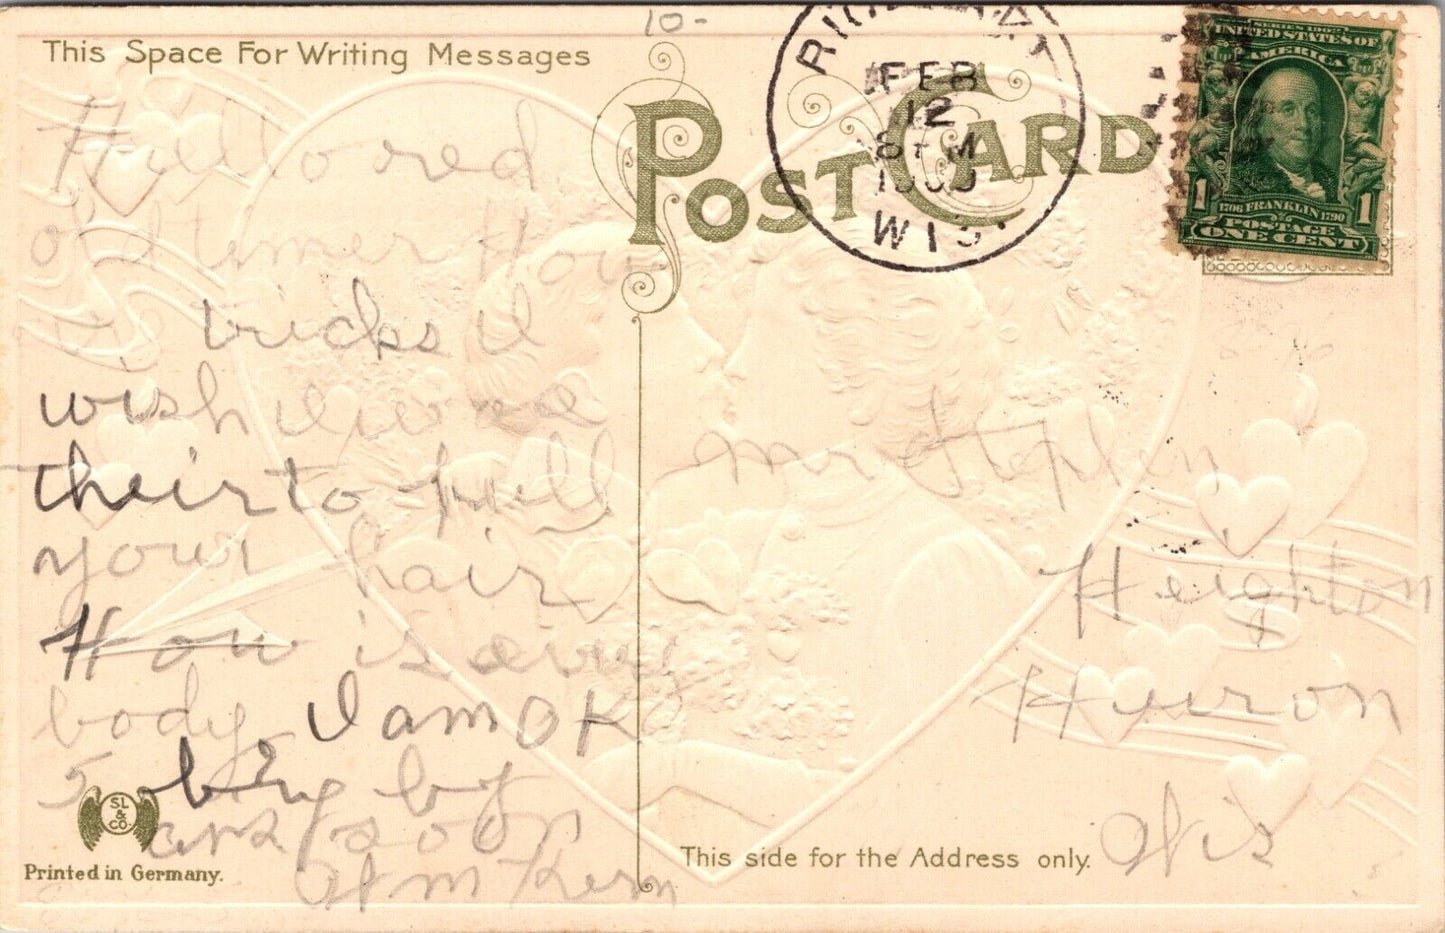 10-
This Space For Writing Messages
POST CARD
FEB
12
1909
WIS.
SERIES 1902
UNITED STATES OF
AMERICA
1 1
1706 FRANKLIN 1790
POSTAGE
ONE CENT
Hello red
old timer How
is tricks I
wish I was
their to pull
your hair
How is every
body. I am O K
So
by
ans soon
Wm Kern
Mr Stephen
Heighton
Huron
Wis
SL
&
CO.
Printed in Germany.
This side for the Address only.